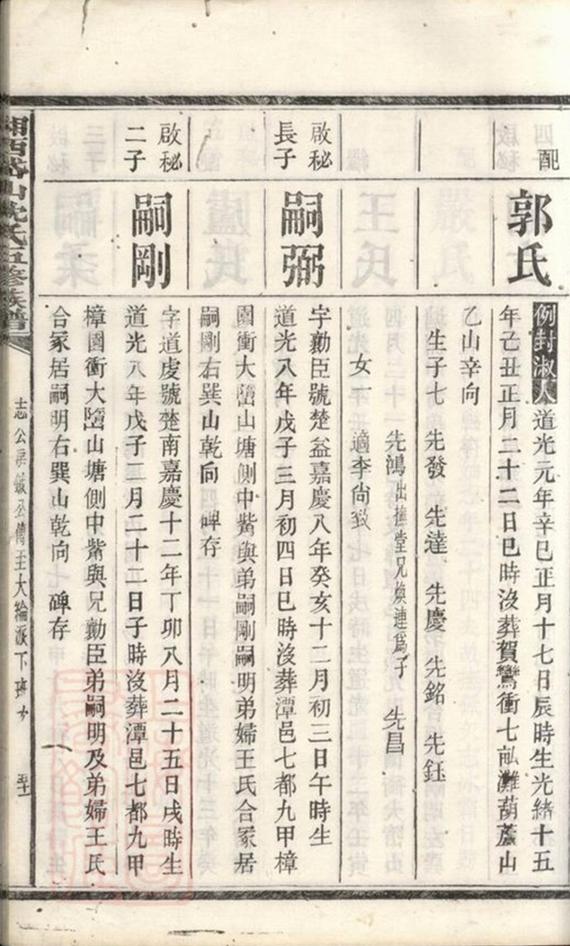 配
郭氏
例封淑人道光元年辛巳正月十七日辰時生光緒十五
年己丑正月二十二日巳時沒葬賀鸞衝七畝灘葫蘆山
乙山辛向
生子七 先發 先達 先慶 先銘 先鈺
先鴻出撫堂兄煥連爲子 先昌
女一 適李尙致
啟秘
長子
嗣弼
字勷臣號楚益嘉慶八年癸亥十二月初三日午時生
道光八年戊子三月初四日巳時沒葬潭邑七都九甲樟
園衝大塘山塘側中觜與弟嗣剛嗣明弟婦王氏合冢居
嗣剛右巽山乾向 碑存
啟秘
二子
嗣剛
字道虔號楚南嘉慶十二年丁卯八月二十五日戌時生
道光八年戊子二月二十二日子時沒葬潭邑七都九甲
樟園衝大塘山塘側中觜與兄勷臣弟嗣明及弟婦王氏
合冢居嗣明右巽山乾向 碑存
湘西岱山沈氏五修族譜